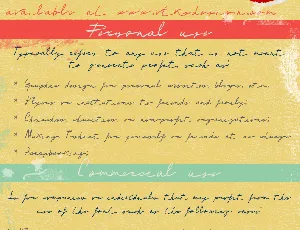 available at www.
Personal use
Typically refers to any use that is not meant
to generate profit such as:
* Graphic design for personal websites, blogs, etc.
* Flyers or invitations to friends and family
* Churches, charities, or non-profit organizations
* Making for yourself or friends at no charge
* Scrapbooking
Commercial use
Is for companies or individuals that may profit from the
use of the font, such as the following uses